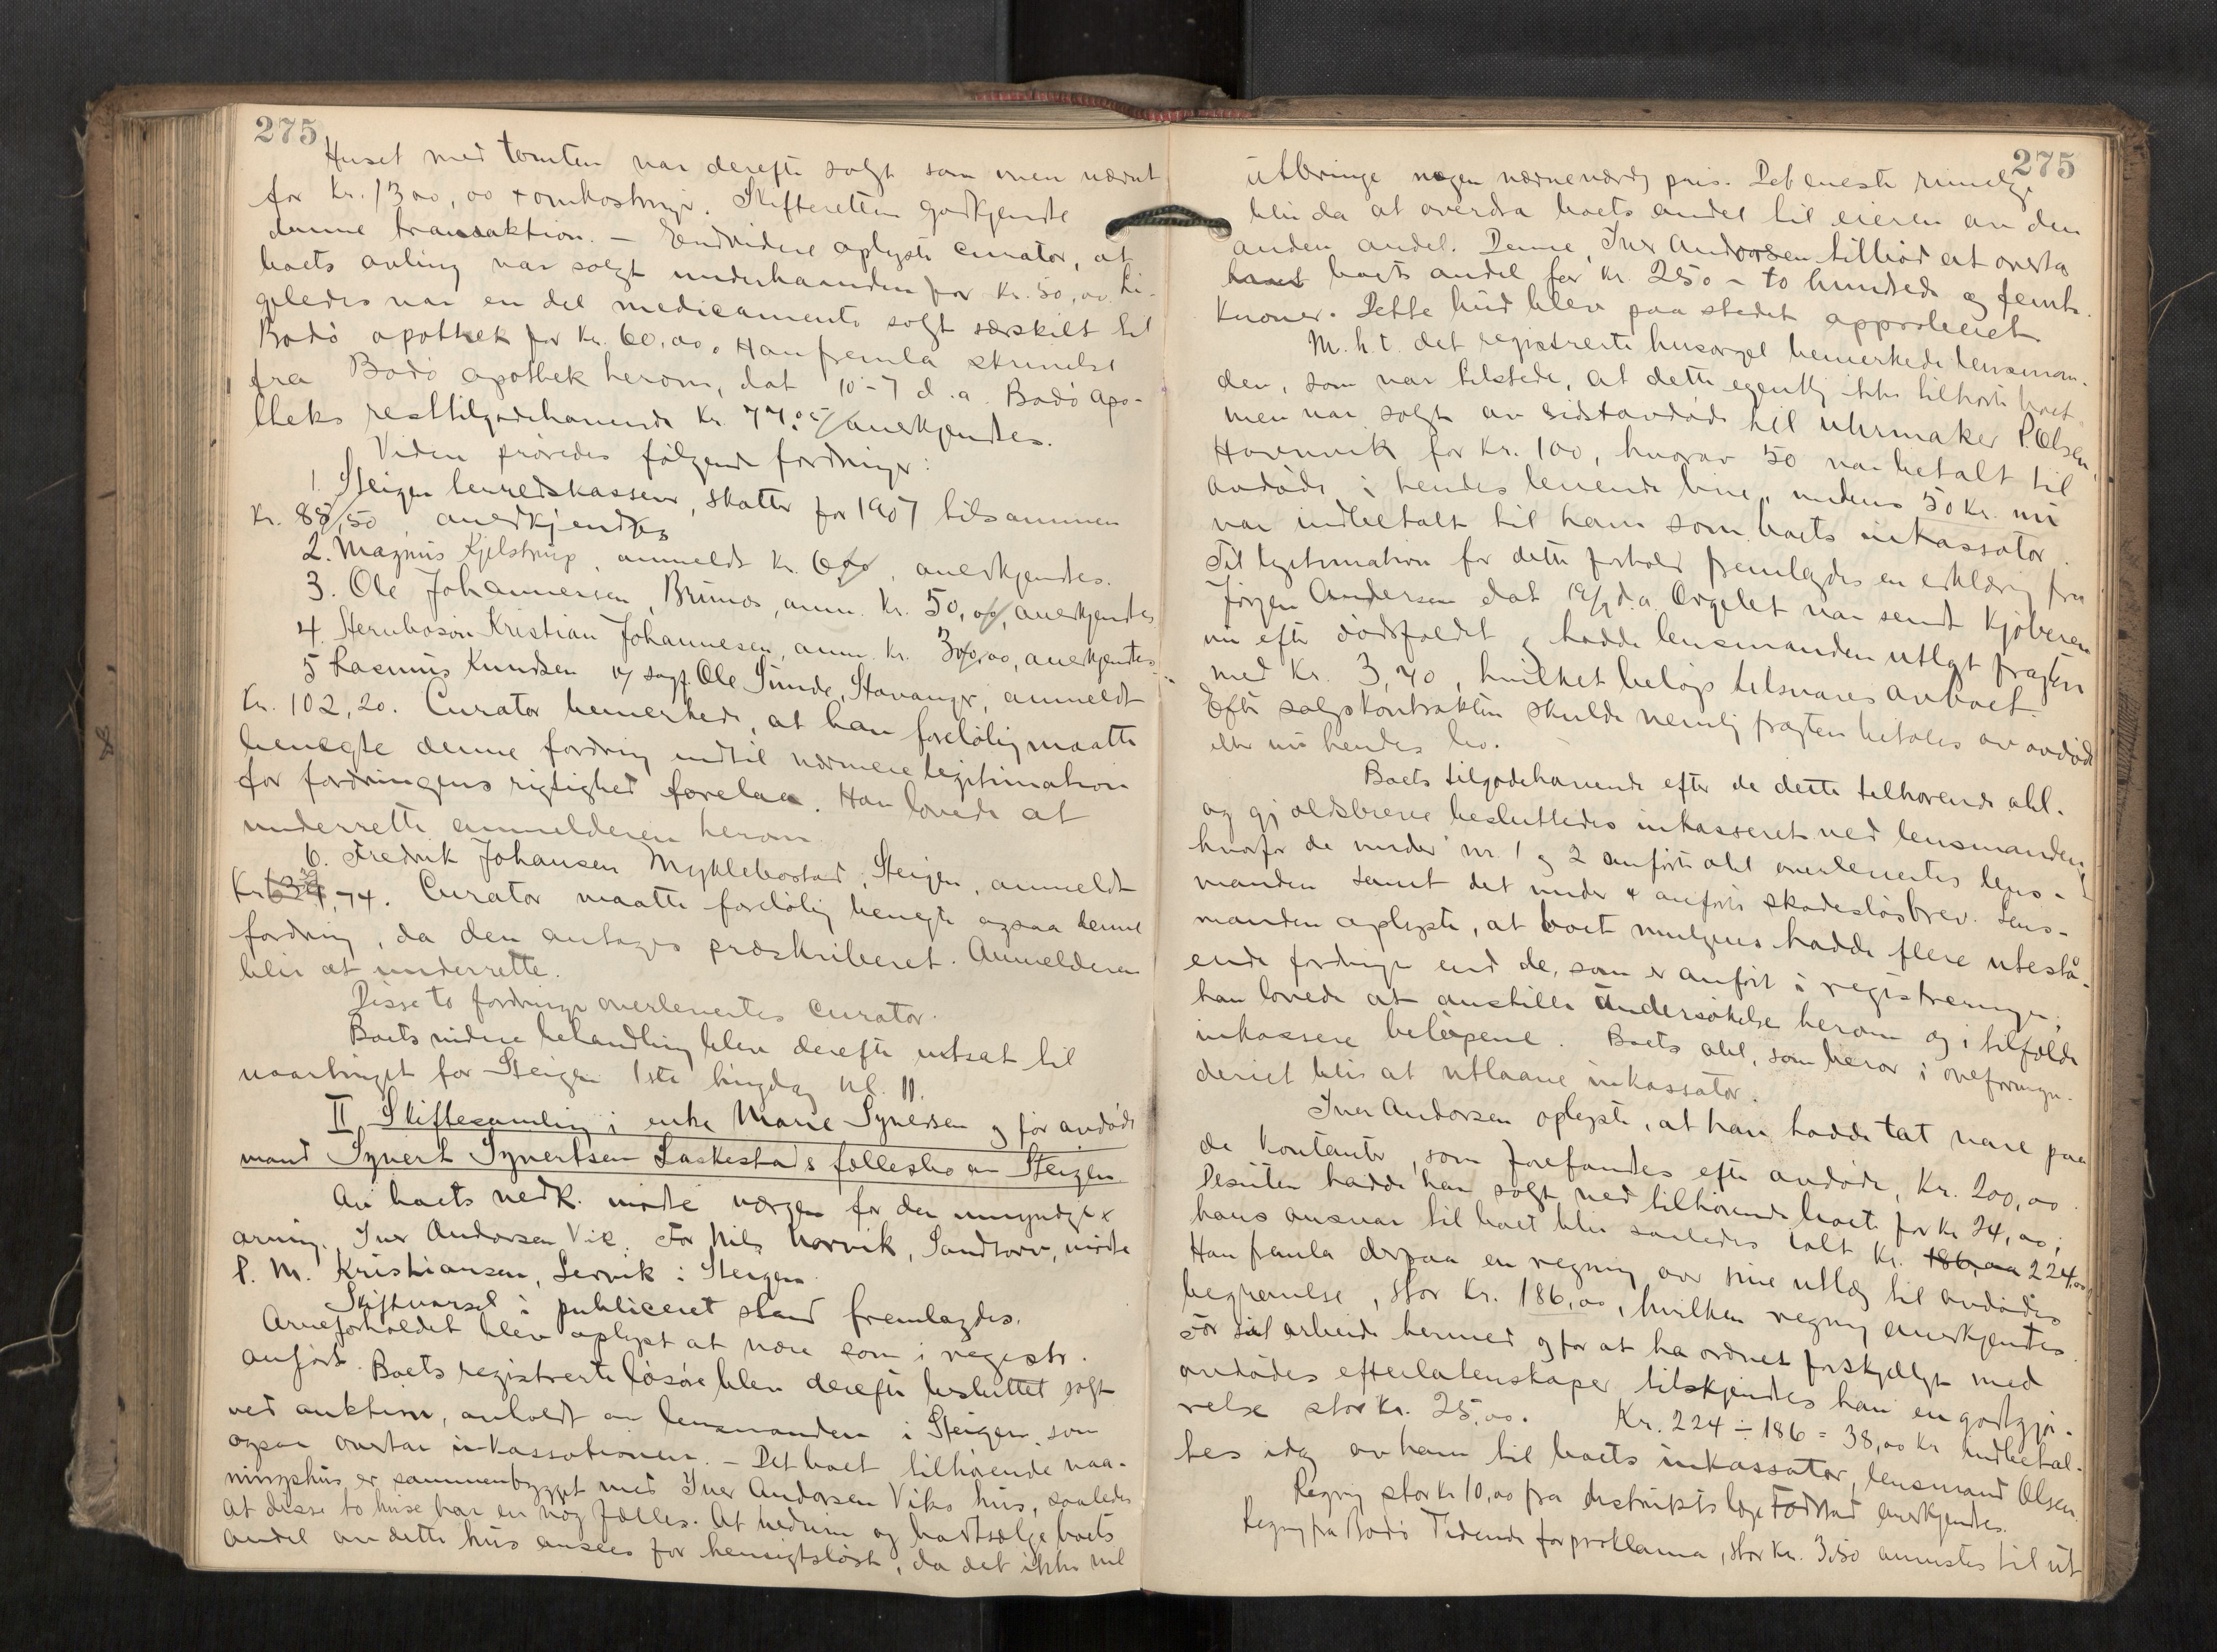 275
Huset med tomten var derefter solgt som ovennævnt
for Kr. 1300,00 + omkostninger. Skifteretten godkjendte
denne transaktion. – Endvidere oplyste curator, at
boets avling var solgt underhaanden for Kr. 50,00. Li-
geledes var en del medicamenter solgt særskilt til
Bodö apothek for Kr. 60,00. Han fremla skrivelse
fra Bodö apothek herom, dat 10-7 d.a. Bodö apo-
theks resttilgodehavende Kr. 77,05 anerkjendtes.
Videre prövedes fölgende fordringer:
1. Steigen herredskasserer, skatter for 1907 tilsammen
Kr. 88,50 anerkjendtes
2. Magnus Kjelstrup, anmeldt Kr. 6,00, anerkjendtes.
3. Ole Johannesen, Brunos, anm. Kr. 50,00, anerkjendtes
4. Stenbosön Kristian Johannesen, anm. Kr. 300,00, anerkjendtes
5 Rasmus Knudsen v/ sagf. Ole Sunde, Stavanger, anmeldt
Kr. 102,20. Curator bemerkede, at han forelöbig maatte
benegte denne fordring indtil nærmere legitimation
for fordringens rigtighed forelaa. Han lovede at
underrette anmelderen herom
6. Fredrik Johansen Myklebostad, Steigen, anmeldt
Kr. 634,74. Curator maatte forelöbig benegte ogsaa denne
fordring, da den antages præskriberet. Anmelderen
blir at underrette.
Disse to fordringer overlevertes curator.
Boets videre behandling blev derefter utsat til
vaartinget for Steigen 1ste tingdag kl. 11.
II Skiftesamling i enke Marie Synersen og för avdöde
mand Syvert Syvertsen Laskestads fællesbo av Steigen
Av boets vedk. mötte værgen for den umyndige
arving, Iver Andorsen Vik. For Nils Norvik, Sandtorv, mötte
P. M. Kristiansen, Lervik i Steigen.
Skiftvarsel i publiceret stand fremlagdes.
Arveforholdet blev oplyst at være som i registr.
anfört. Boets registrerte lösöre blev derefter besluttet solgt
ved auktion, avholdt av lensmanden i Steigen, som
ogsaa overtar inkassationen. – Det boet tilhörende vaa-
ningshus er sammenbygget med Iver Andorsen Viks hus, saaledes
at disse to huse har en væg fælles. At nedrive og bortsælge boets
andel av dette hus ansees for hensigtslöst, da det ikke vil
275
utbringe nogen nævneværdig pris. Det eneste rimelige
blir da at overdra boets andel til eieren av den
anden andel. Denne, Iver Andorsen tilbiöd at overta
boets andel for Kr. 250 – to hundrede og femti
Kroner. Dette bud blev paa stedet approberet
M.h.t. det registrerte husorgel bemerkede lensman-
den, som var tilstede, at dette egentlig ikke tilhörte boet
men var solgt av sidstavdöde til uhrmaker P. Olsen,
Havnvik for Kr. 100, hvorav 50 var betalt til
avdöde i hendes levende live, medens 50 Kr. nu
var indbetalt til ham som boets inkassator.
Til legitimation for dette forhold fremlagdes en erklæring fra
Jörgen Andersen dat 19/7 d.a. Orgelet var sendt kjöberen
nu efter dödsfaldet og hadde lensmanden utlagt fragten
med Kr. 3,70, hvilket belöp tilsvares av boet.
Efter salgskontrakten skulde nemlig fragten betales av avdöde
eller nu hendes bo.
Boets tilgodehavende efter de dette tilhörende obl.
og gjældsbreve besluttedes inkasseret ved lensmanden,
hvorfor de under nr. 1 og 2 anförte obl overlevertes lens-
manden samt det under 4 anförte skadeslösbrev. Lens-
manden oplyste, at boet muligens hadde flere utestå-
ende fordringer end de, som er anfört i registreringen;
han lovede at anstille undersökelse herom og i tilfælde
inkassere belöpene. Boets obl, som beror i overformyn-
deriet blir at utlaane inkassator.
Iver Andorsen oplyste, at han hadde tat vare paa
de kontanter, som forefandtes efter avdöde, Kr. 200,00.
Desuten hadde han solgt ved tilhörende boet for Kr 24,00;
hans ansvar til boet blir saaledes ialt Kr. 186,00 224,00
Han fremla derpaa en regning over sine utlæg til avdödes
begravelse, stor Kr. 186,00, hvilken regning anerkjendtes.
For sit arbeide hermed og for at ha ordnet forskjelligt med
avdödes efterlatenskaper tilskjendtes han en godtgjö-
relse stor Kr. 25,00. Kr. 224 ÷ 186 = 38,00 Kr indbetal-
tes idag av ham til boets inkassator, lensmand Olsen.
Regning stor Kr 10,00 fra distriktslæge Fodstad anerkjendtes.
Regning fra Bodö Tidende for proklama, stor Kr. 3,50 anvistes til ut